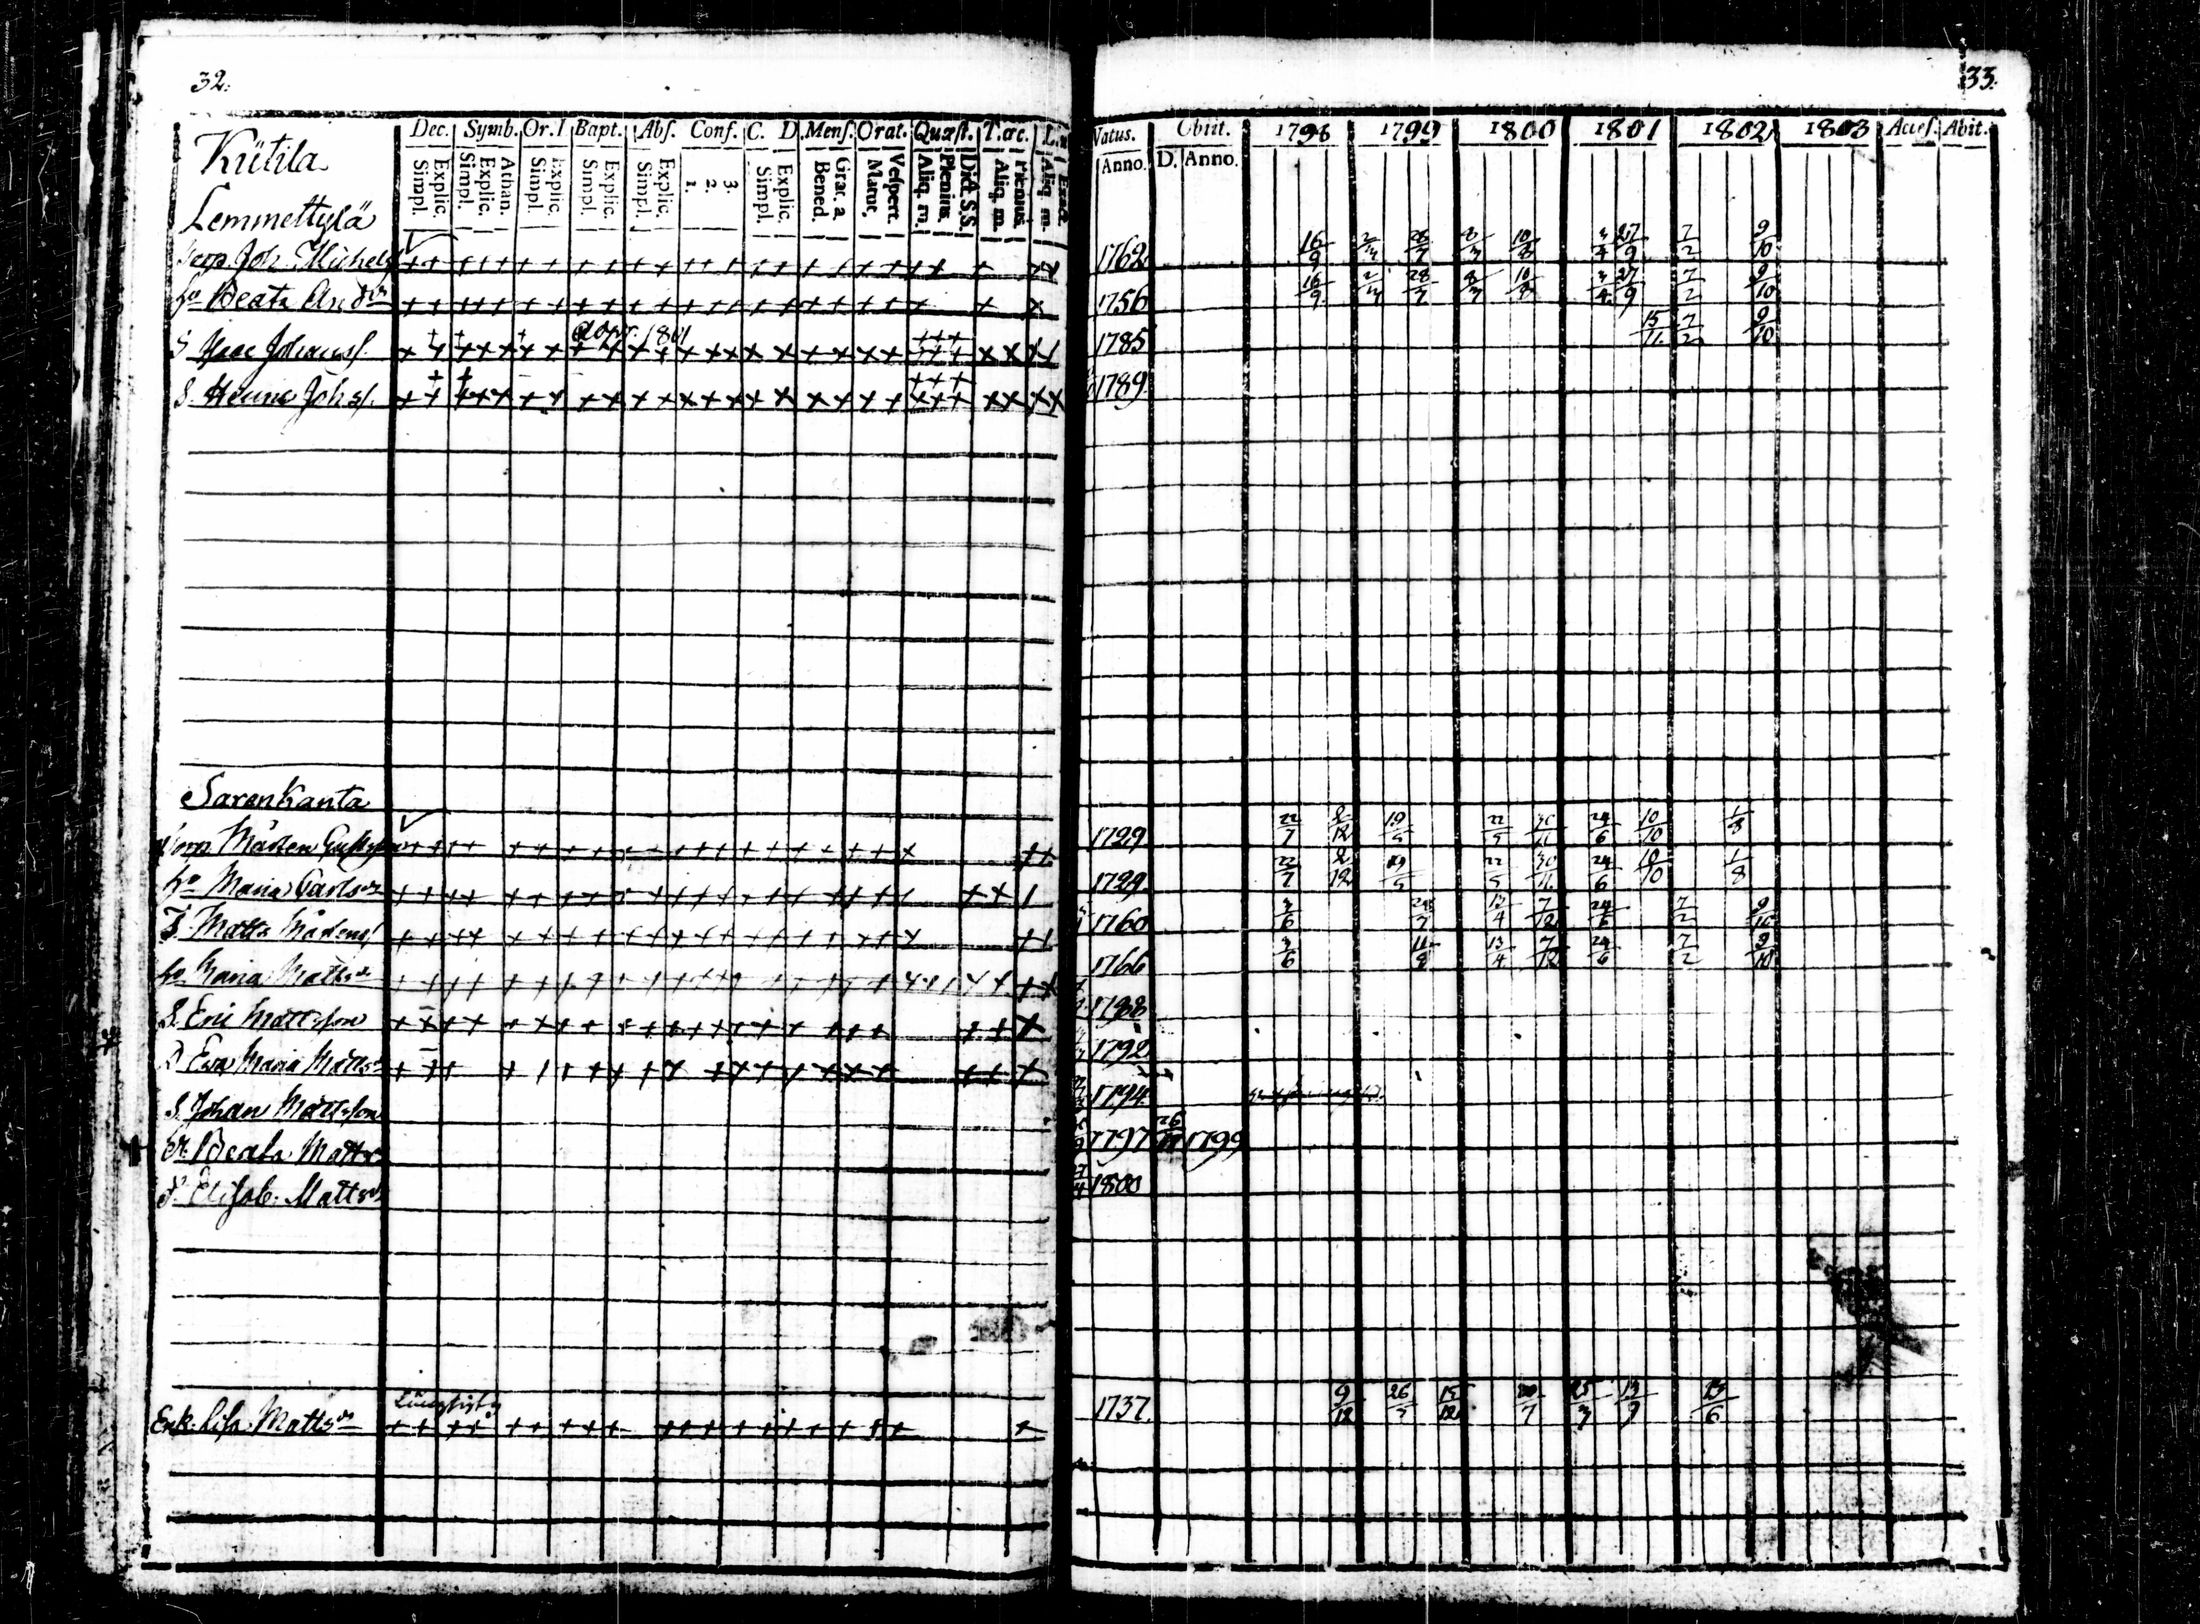 32.
33.
Dec. Symb. Or. I Bapt. Abſ. Conf. C. D. Menſ. Orat. Quæſt. Tœc. L.
Natus. Obiit. 1798 1799 1800 1801 1802 1803 Acceſ. Abit.
Explic. Simpl. Athan. Explic. Simpl. Explic. Simpl. Explic. Simpl. Explic. Simpl. 3. 2. 1. Explic. Simpl. Grat. a Bened. Veſpert. Matut. Dict. S.S. Plenius. Aliq. m. Plenius. Aliq. m. Exact. Aliq. m.
Anno. D. Anno.
Kütila
Lemmettylä
Joh. Michels 1762 16/9 2/3 28/7 8/3 10/8 3/4 27/9 7/2 9/10
hu Beata And dr 1756 16/9 2/3 28/7 8/3 10/8 3/4 27/9 7/2 9/10
S Johanſ. 1801 1785 15/11 7/2 9/10
S. Johsſ. 1789
Sarenkanta
Mårten 1729 22/7 2/12 19/5 22/5 30/11 24/6 10/10 1/8
hu Maria Carls dr 1729 22/7 2/12 19/5 22/5 30/11 24/6 10/10 1/8
Matts Mårtensſ 1760 3/6 28/7 13/4 7/12 24/6 7/2 9/10
hu Maria Matts dr 1766 3/6 11/8 13/4 7/12 24/6 7/2 9/10
S. Eric Mattsſon 1788
D Eva Maria Matts dr 1792
S. Johan Mattsſon 1794
Beata Matts dr 1797 26/11 1799
Eliſab. Matts dr 1800
Enk. Liſa Matts dr 1737. 9/12 26/5 15/12 20/7 25/3 13/9 13/6